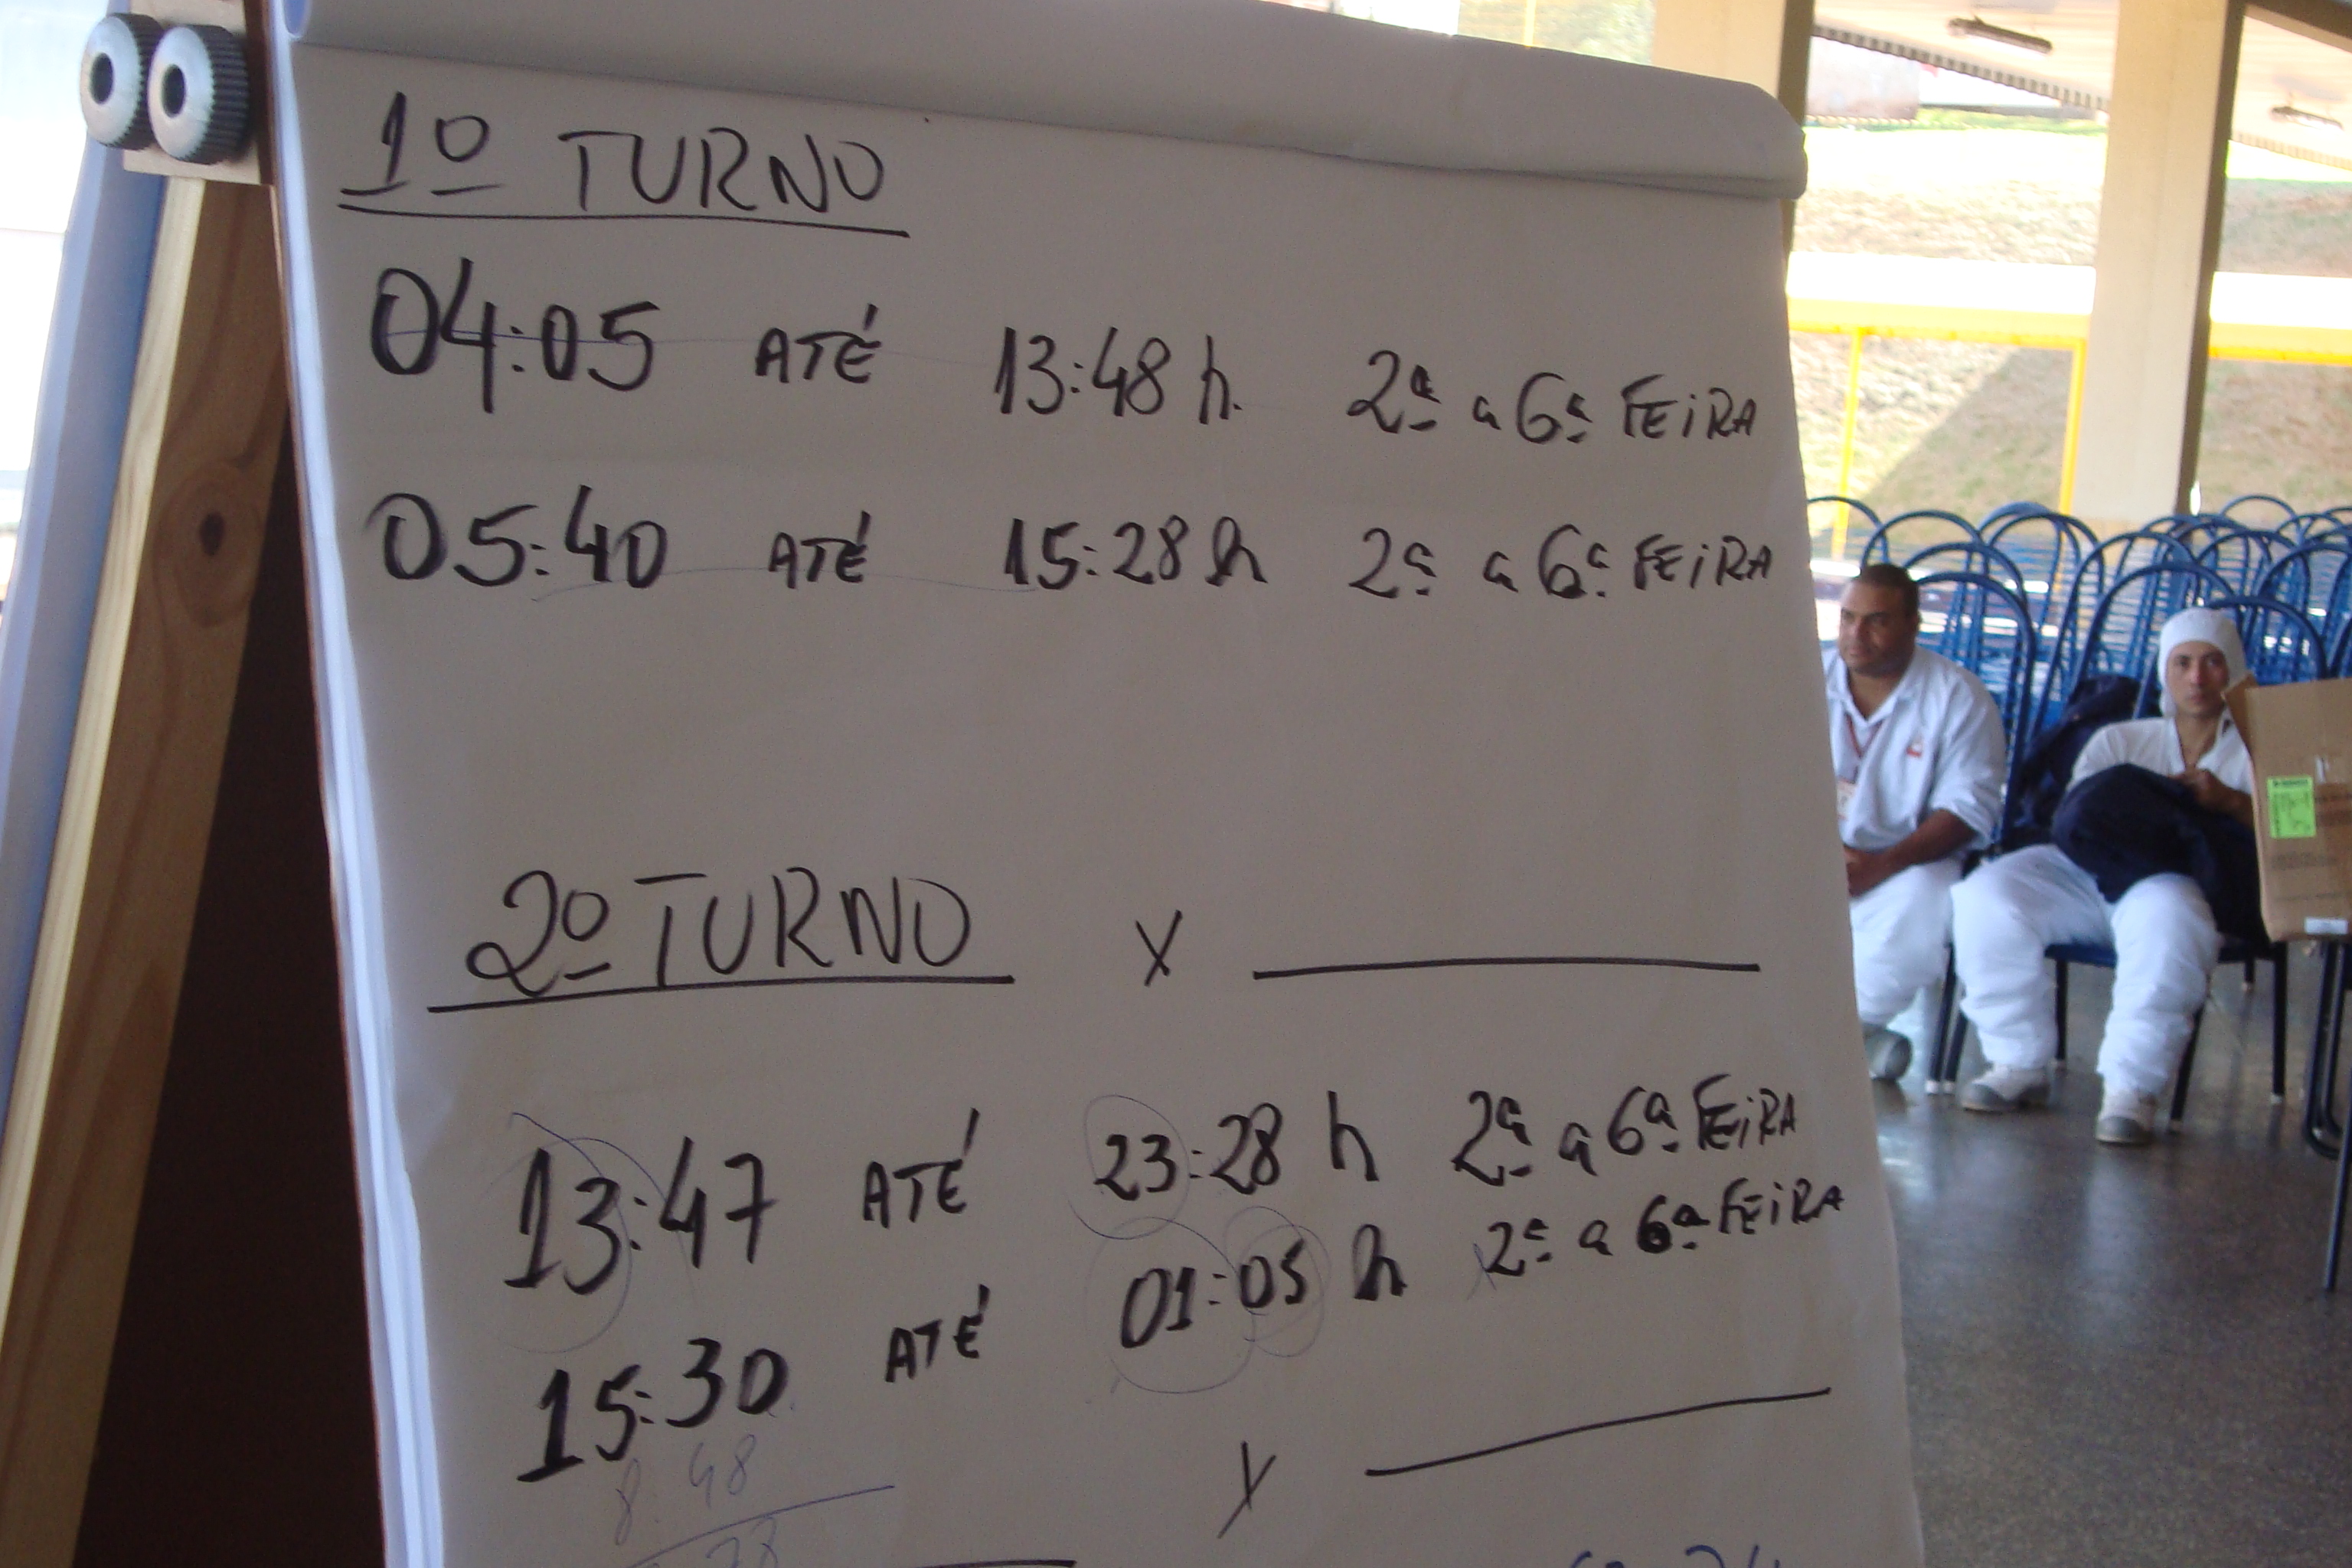 1º TURNO
04:05 ATÉ 13:48 h. 2ª a 6ª FEIRA
05:40 ATÉ 15:28 h 2ª a 6ª FEIRA
2º TURNO X
13:47 ATÉ 23:28 h 2ª a 6ª FEIRA
15:30 ATÉ 01:05 h 2ª a 6ª FEIRA
8:48
X